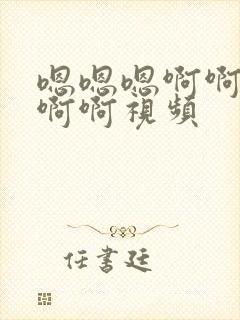 嗯嗯嗯啊啊
啊啊視頻
任書廷